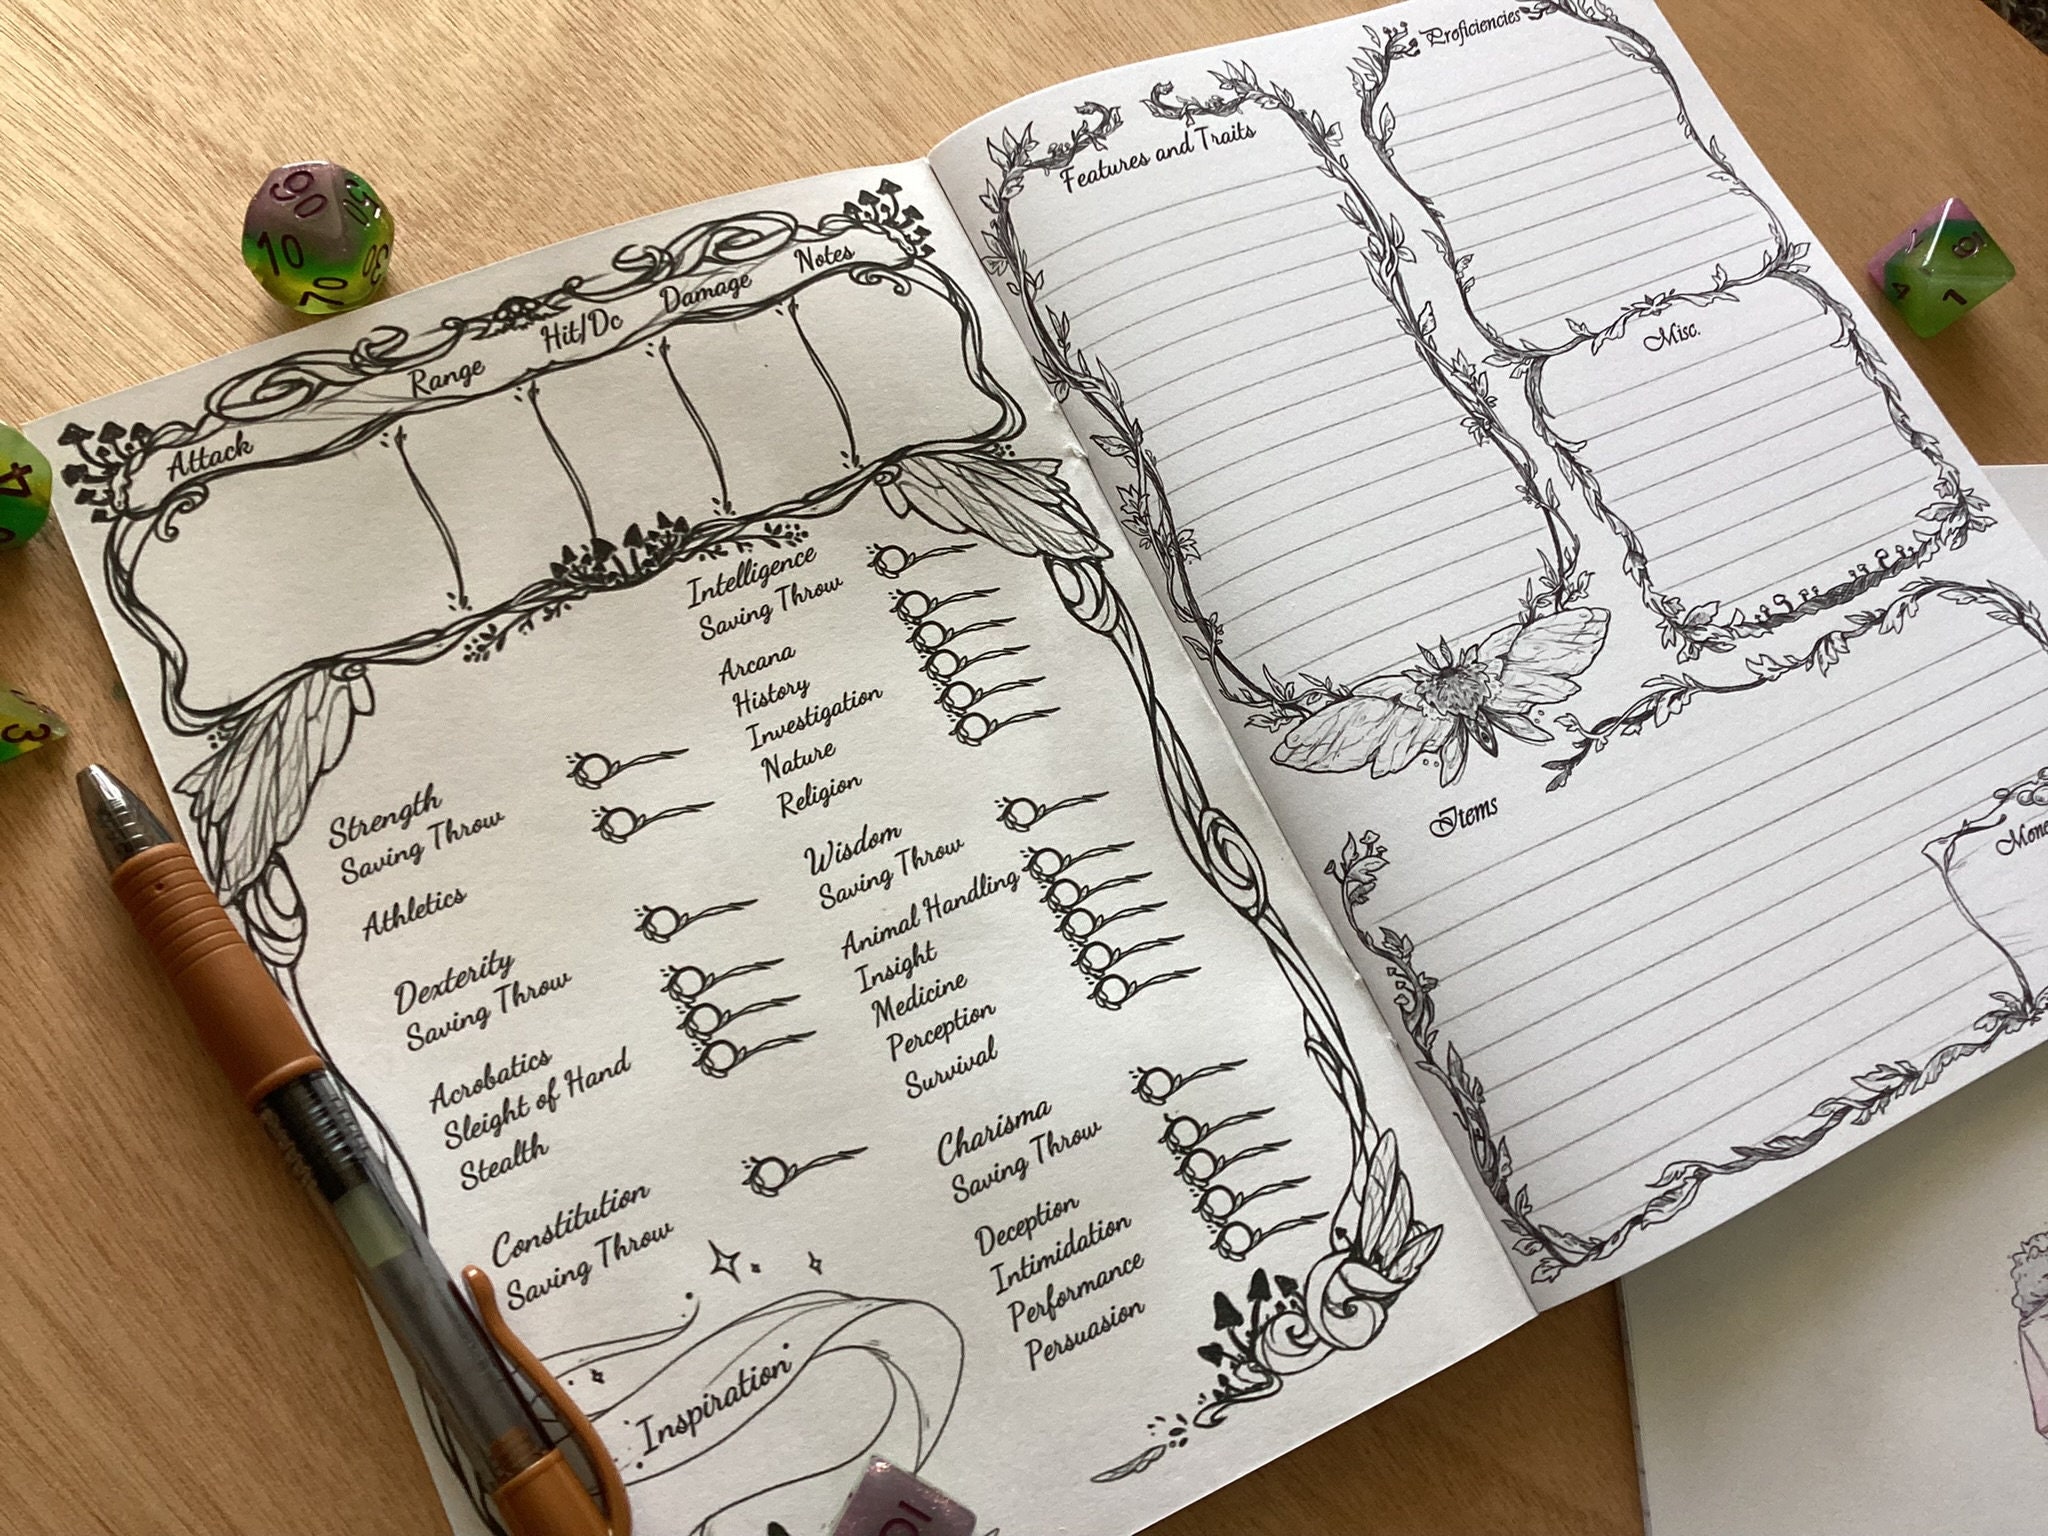 Attack
Range
Hit/Dc
Damage
Notes
Strength
Saving Throw
Athletics
Dexterity
Saving Throw
Acrobatics
Sleight of Hand
Stealth
Constitution
Saving Throw
Inspiration
Intelligence
Saving Throw
Arcana
History
Investigation
Nature
Religion
Wisdom
Saving Throw
Animal Handling
Insight
Medicine
Perception
Survival
Charisma
Saving Throw
Deception
Intimidation
Performance
Persuasion
Features and Traits
Proficiencies
Misc.
Items
90
10
70
30
50
4
3
1
4
10